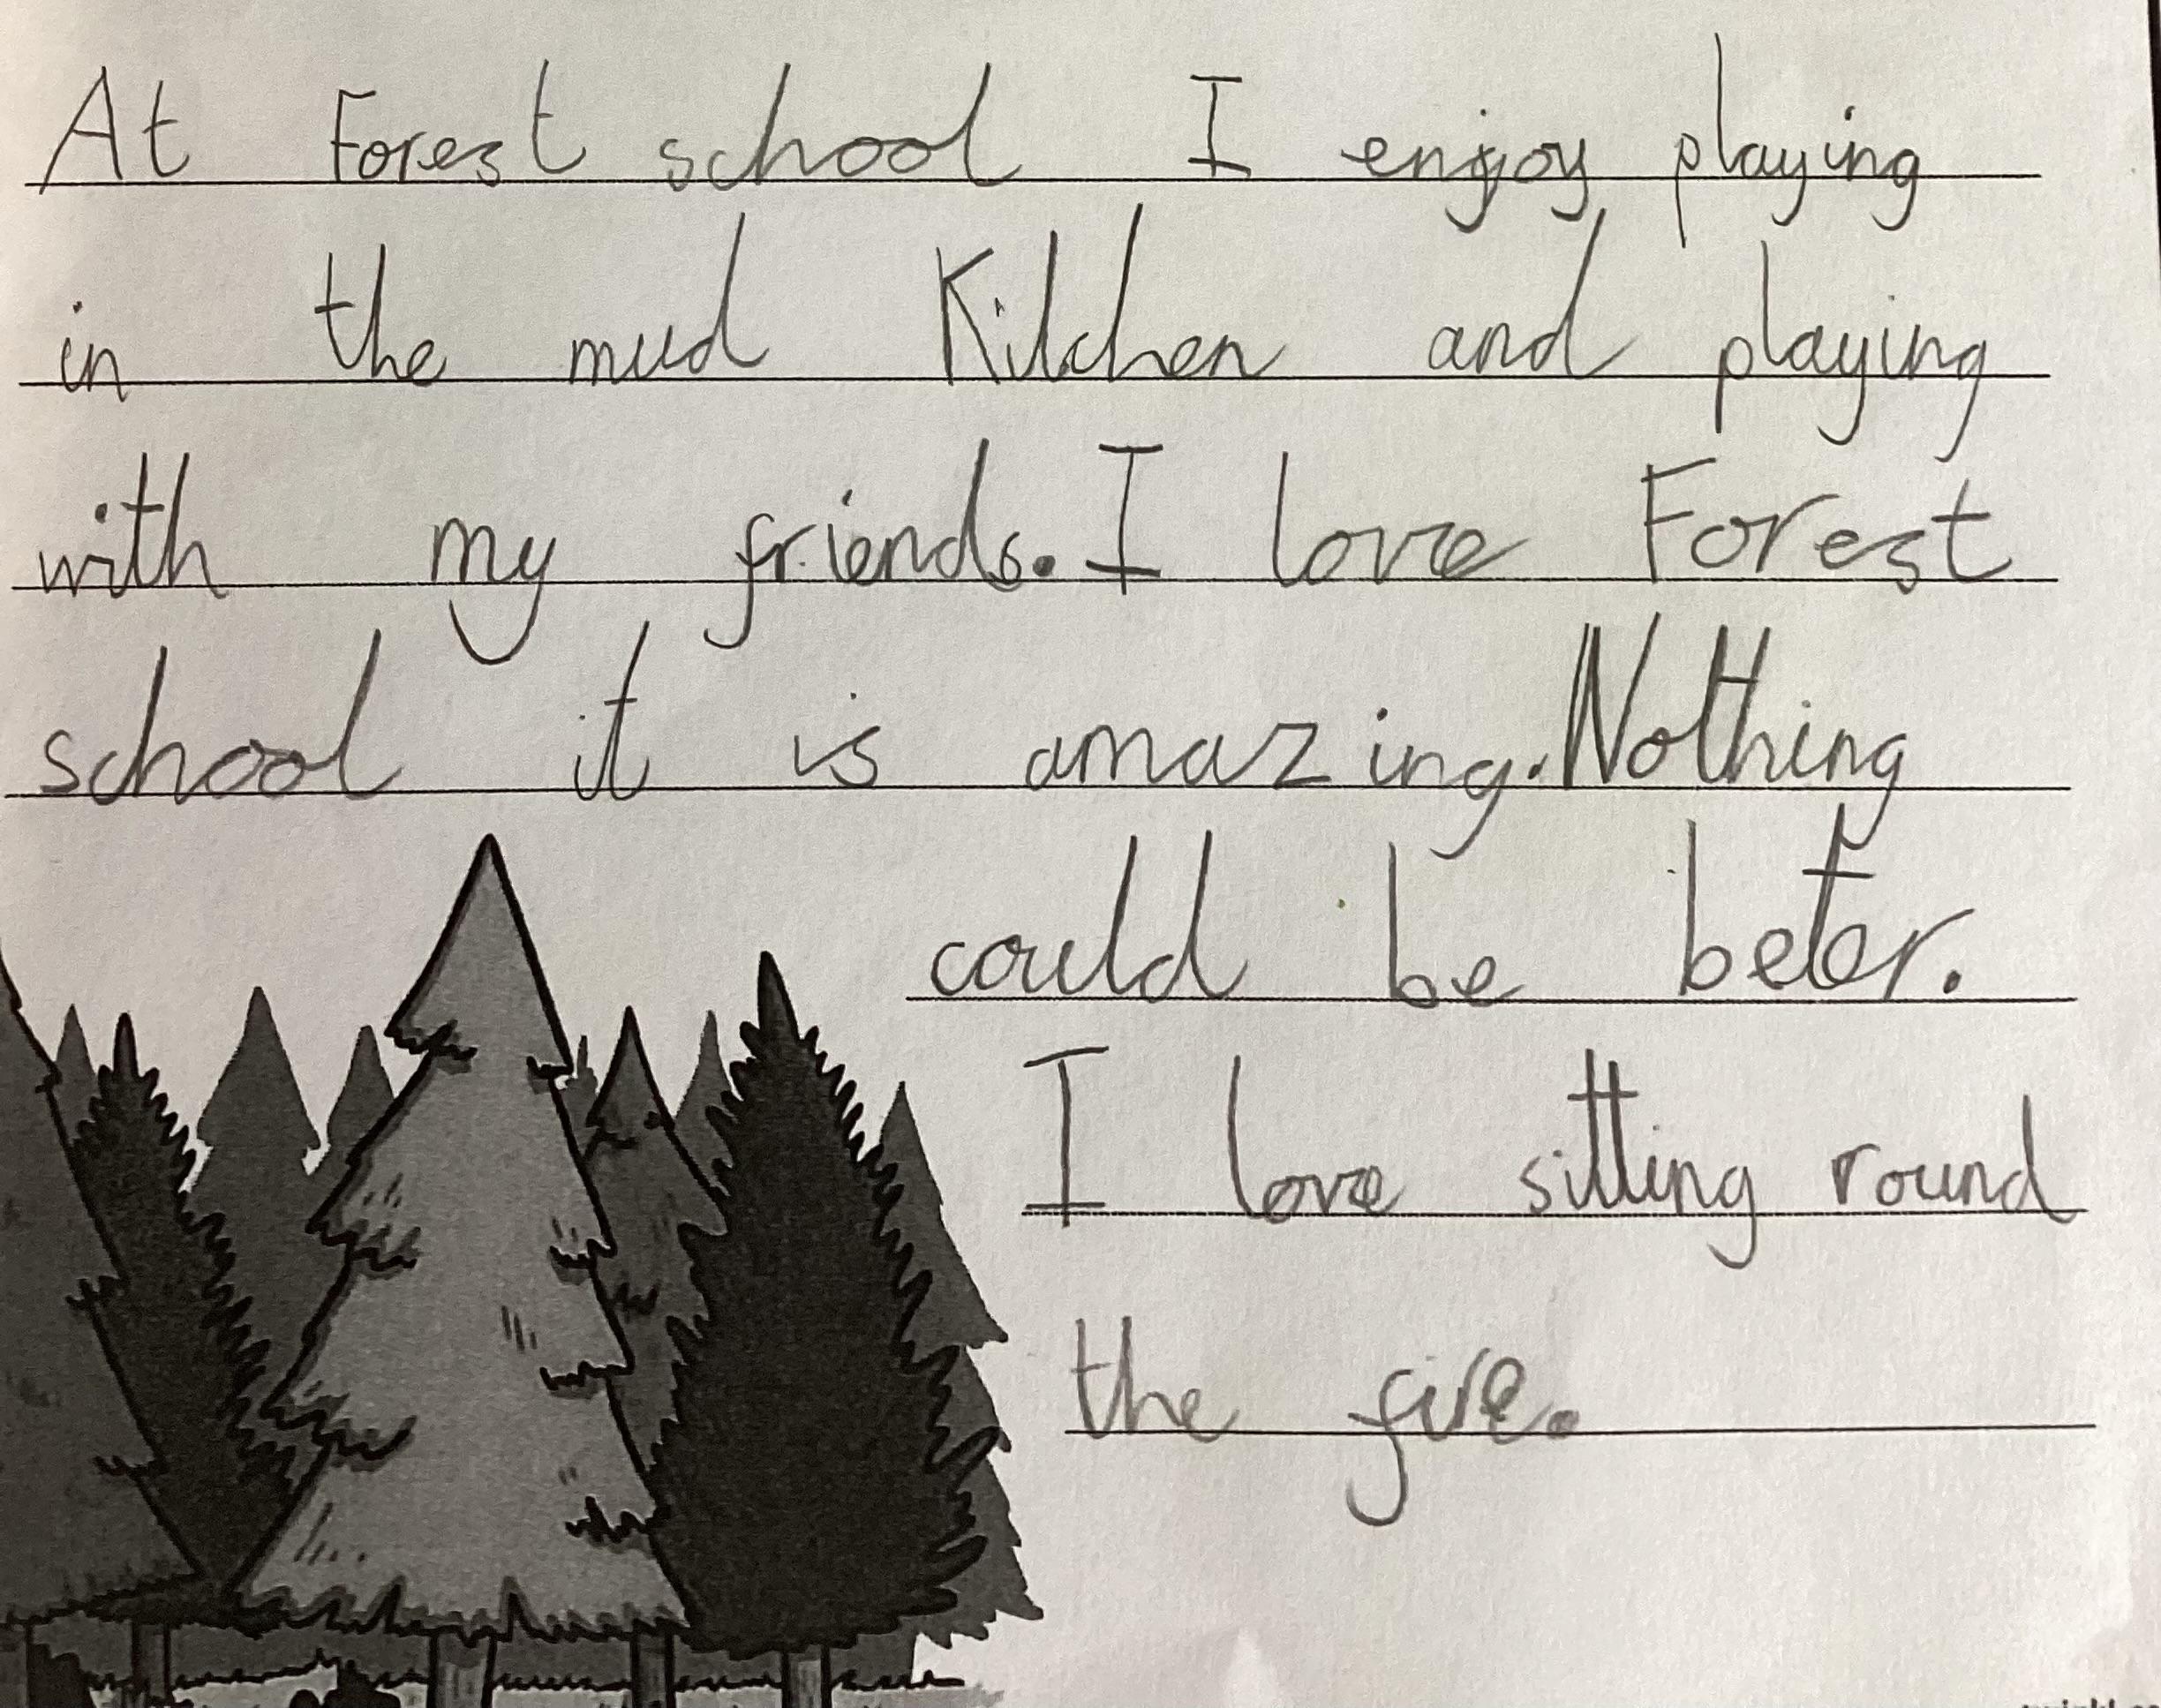 At Forest school I enjoy playing
in the mud Kitchen and playing
with my friends. I love Forest
school it is amazing. Nothing
could be beter.
I love sitting round
the fire.